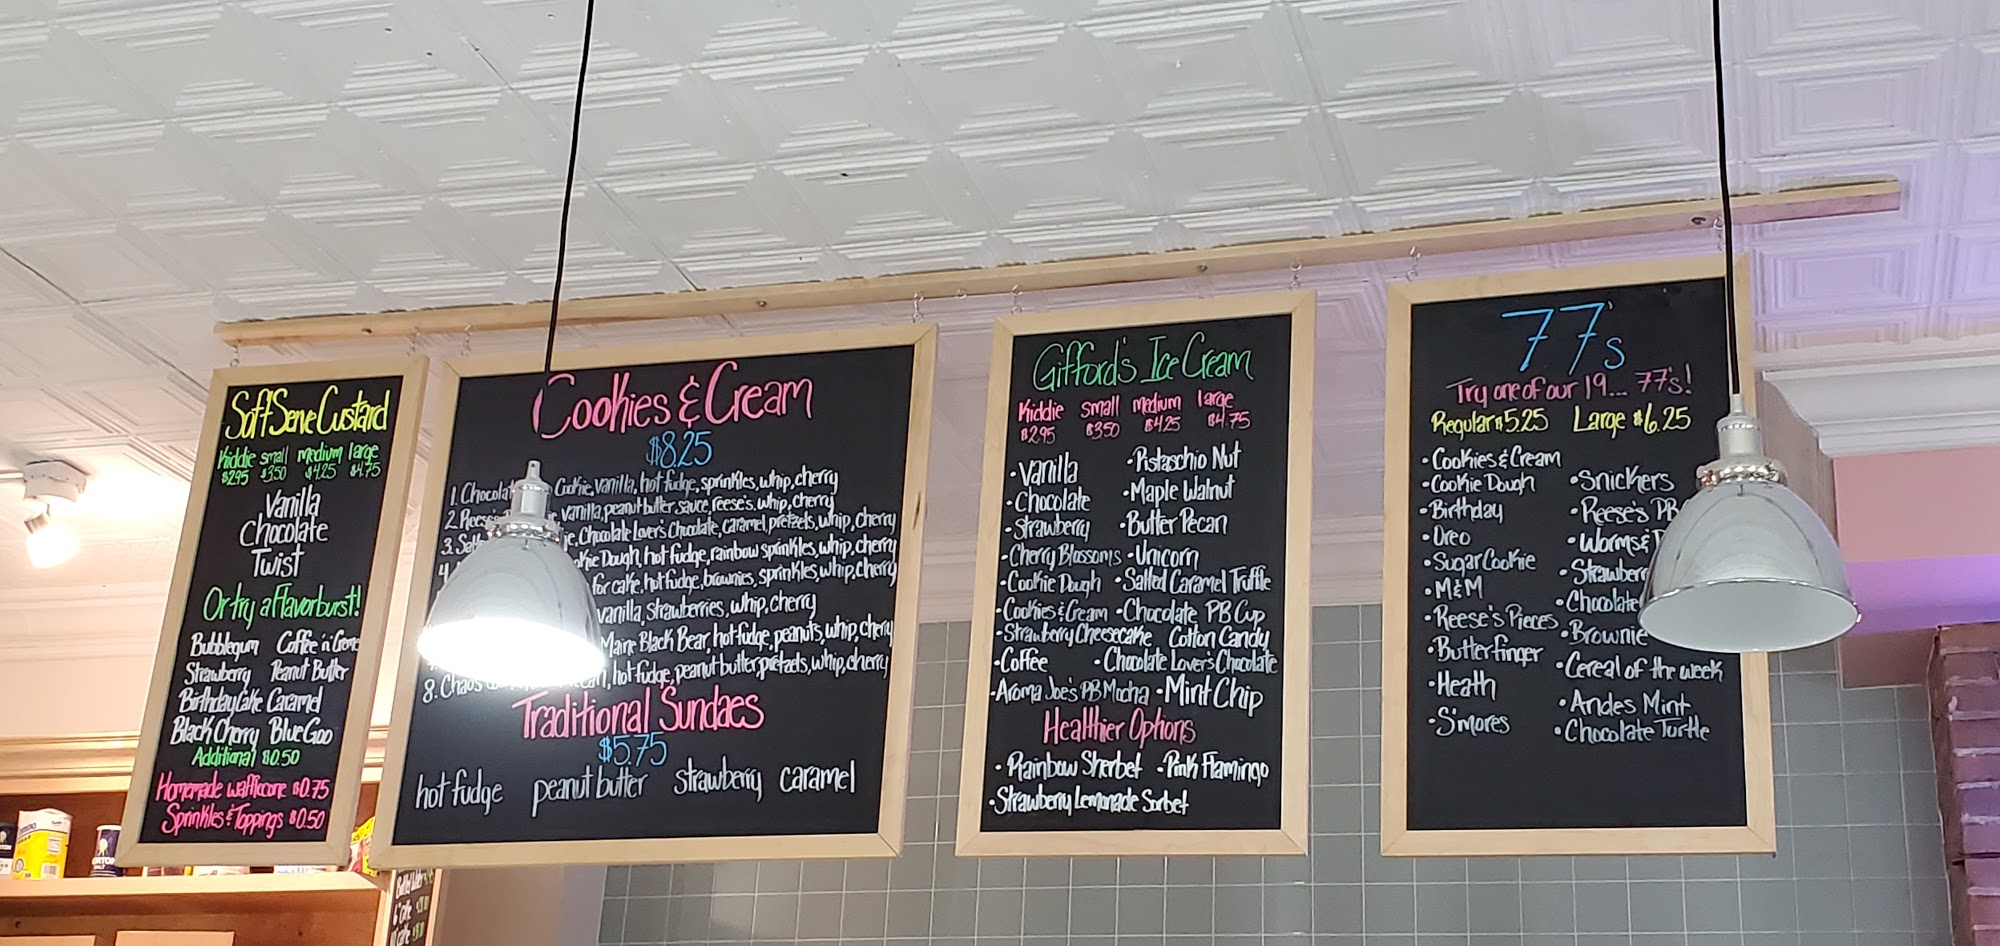 Soft Serve Custard
Kiddie small medium large
$2.95 $3.50 $4.25 $4.75
Vanilla
Chocolate
Twist
Or try a Flavorburst!
Bubblegum Coffee 'n Creme
Strawberry Peanut Butter
Birthday Cake Caramel
Black Cherry Blue Goo
Additional $0.50
Homemade waffle cone $0.75
Sprinkles & Toppings $0.50
Cookies & Cream
$8.25
1. Chocolate Cookie, vanilla, hot fudge, sprinkles, whip, cherry
2. Reese's vanilla, peanut butter sauce, reese's, whip, cherry
3. Chocolate Lover's Chocolate, caramel, pretzels, whip, cherry
4. Dough, hot fudge, rainbow sprinkles, whip, cherry
for cake, hot fudge, brownies, sprinkles, whip, cherry
vanilla, strawberries, whip, cherry
Maine Black Bear, hot fudge, peanuts, whip, cherry
8. Chaos hot fudge, peanut butter, pretzels, whip, cherry
Traditional Sundaes
$5.75
hot fudge peanut butter strawberry caramel
Gifford's Ice Cream
Kiddie small medium large
$2.95 $3.50 $4.25 $4.75
• Vanilla
• Chocolate
• Strawberry
• Cherry Blossoms
• Cookie Dough
• Cookies & Cream
• Strawberry Cheesecake
• Coffee
• Aroma Joe's PB Mocha
• Pistaschio Nut
• Maple Walnut
• Butter Pecan
• Unicorn
• Salted Caramel Truffle
• Chocolate PB Cup
Cotton Candy
• Chocolate Lover's Chocolate
• Mint Chip
Healthier Options
• Rainbow Sherbet • Pink Flamingo
• Strawberry Lemonade Sorbet
77's
Try one of our 19... 77's!
Regular $5.25 Large $6.25
• Cookies & Cream
• Cookie Dough
• Birthday
• Oreo
• Sugar Cookie
• M&M
• Reese's Pieces
• Butterfinger
• Heath
• S'mores
• Snickers
• Reese's PB
• Worms &
• Strawberry
• Chocolate
• Brownie
• Cereal of the week
• Andes Mint
• Chocolate Turtle